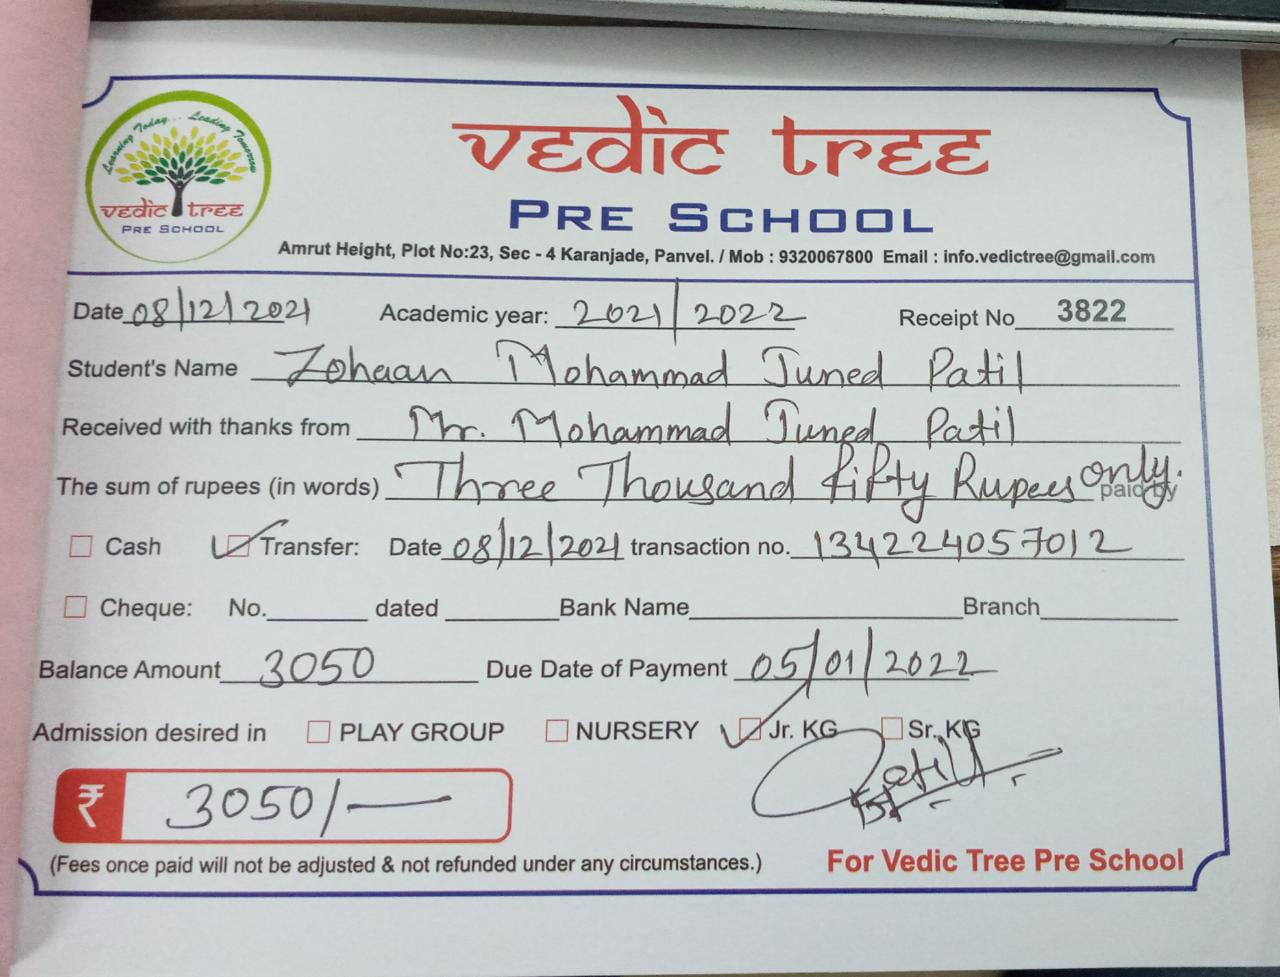 Learning Today... Leading Tomorrow
vedic tree
PRE SCHOOL
vedic tree
PRE SCHOOL
Amrut Height, Plot No:23, Sec - 4 Karanjade, Panvel. / Mob : 9320067800 Email : info.vedictree@gmail.com
Date 08/12/2021 Academic year: 2021/2022 Receipt No 3822
Student's Name Zohaan Mohammad Juned Patil
Received with thanks from Mr. Mohammad Juned Patil
The sum of rupees (in words) Three Thousand fifty Rupees only. paid by
Cash Transfer: Date 08/12/2021 transaction no. 134224057012
Cheque: No. dated Bank Name Branch
Balance Amount 3050 Due Date of Payment 05/01/2022
Admission desired in PLAY GROUP NURSERY Jr. KG Sr. KG
₹ 3050/- Patil
(Fees once paid will not be adjusted & not refunded under any circumstances.) For Vedic Tree Pre School